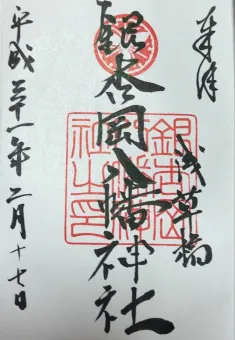 奉拝
浅草橋
銀杏岡八幡神社
銀杏岡
八幡神
社之印
平成三十一年二月十七日